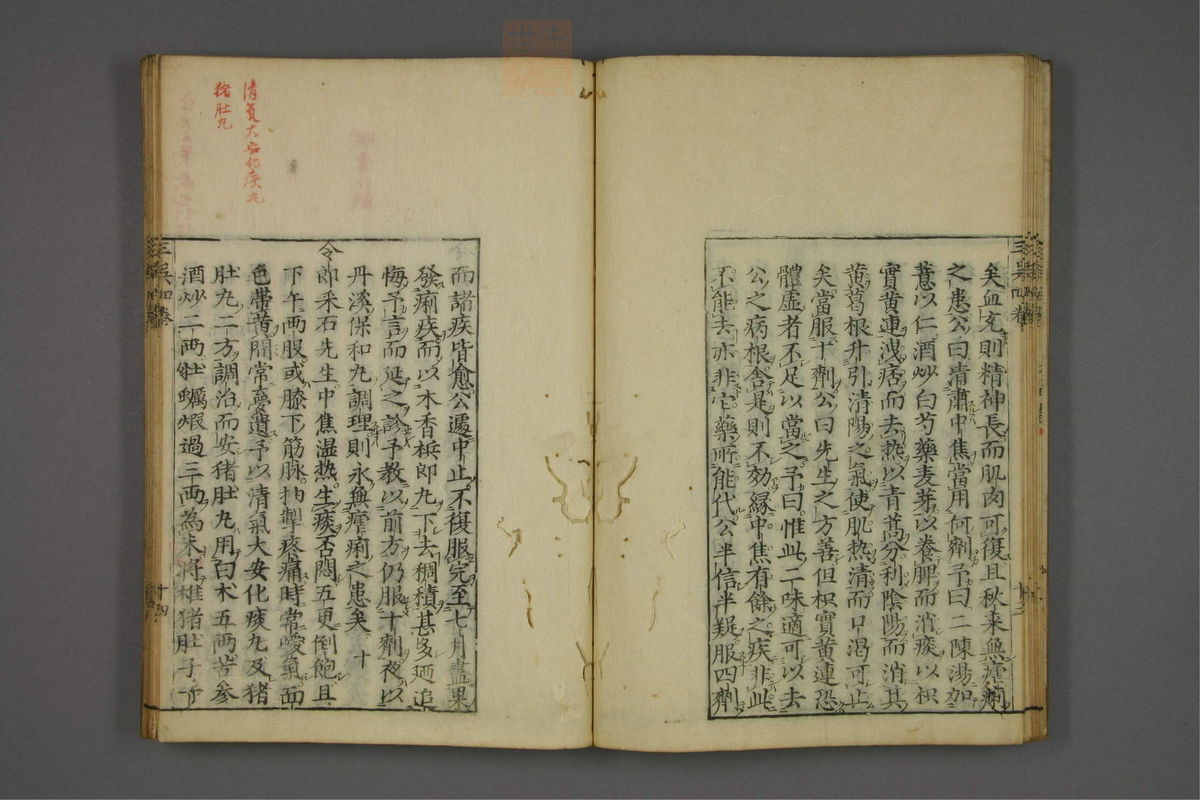 矣血充則精神長而肌肉可復且秋来無瘧痢
之患公曰清肅中焦當用何劑予曰二陳湯加
薏以仁酒炒白芍藥麦芽以養脾而消痰以枳
實黄連洩痞而去热以青蒿分利陰陽而消其
黄葛根升引清陽之氣使肌热清而口渴可止
矣當服十劑公曰先生之方善但枳實黄連恐
體虚者不足以當之予曰惟此二味適可以去
公之病根舍是則不効縁中焦有餘之疾非此
不能去亦非它藥所能代公半信半疑服四劑
三吳四卷
清氣大安化痰丸
猪肚丸
而諸疾皆愈公遽中止不復服完至七月盡果
發痢疾而以木香梹郎丸下去稠積甚多廼追
悔予言而延之診予教以前方仍服十劑夜以
丹溪保和丸調理則永無瘧痢之患矣 十
令郎采石先生中焦湿热生痰否悶五更倒飽且
下午两服或膝下筋脉抽掣疼痛時常噯氣面
色帯黄間常夢遺予以清氣大安化痰丸及猪
肚丸二方調治而安猪肚丸用白术五两苦参
酒炒二两牡蠣煅過三两為末将雄猪肚子一
三吳四卷
十四